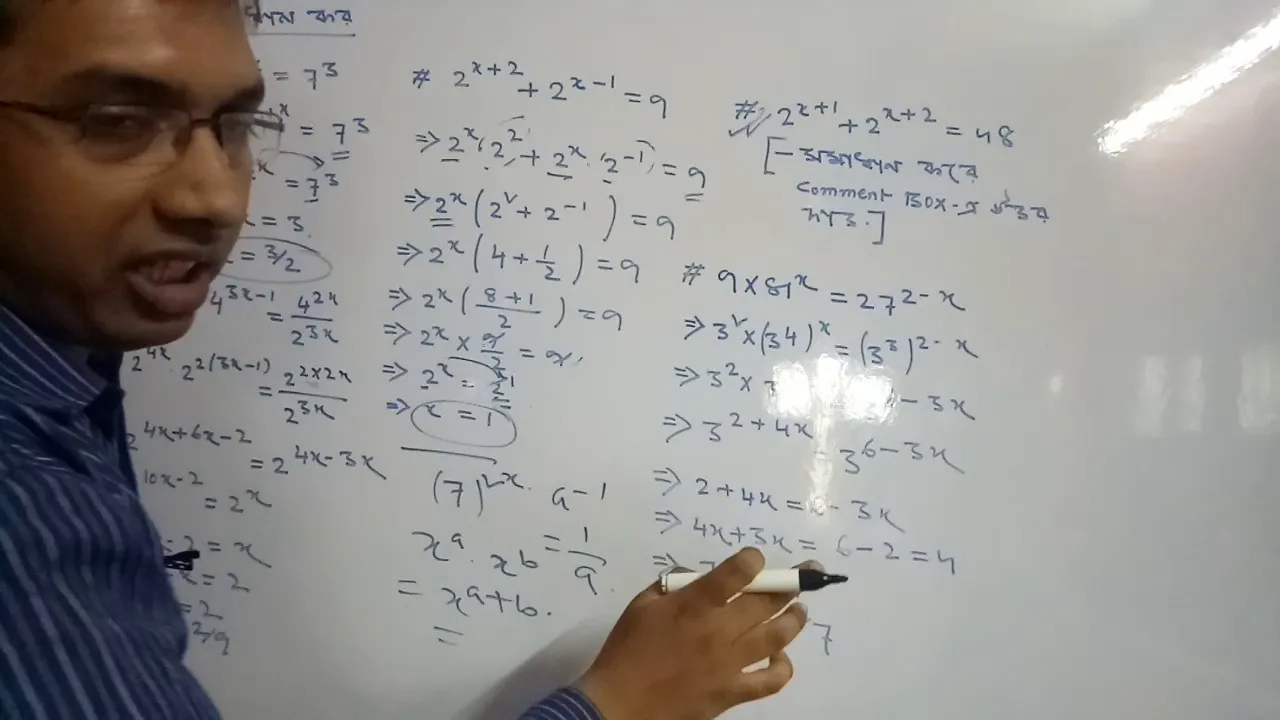 কর
= 7³
= 7³
= 7³
= 3.
= 3/2
4^{3x-1} = 4^{2x}/2^{3x}
2^{4x}. 2^{2(3x-1)} = 2^{2×2x}/2^{3x}
2^{4x+6x-2} = 2^{4x-3x}
10x-2 = 2^x
-2 = x
x = 2
= 2
2/9
# 2^{x+2} + 2^{x-1} = 9
⇒ 2^x. 2² + 2^x. 2^{-1} = 9
⇒ 2^x (2² + 2^{-1}) = 9
⇒ 2^x (4 + 1/2) = 9
⇒ 2^x (8+1/2) = 9
⇒ 2^x × 9/2 = 9
⇒ 2^x = 2^1
⇒ x = 1
(7)^{2x}. a^{-1}
x^a. x^b = 1/a.
= x^{a+b}.
=
# 2^{x+1} + 2^{x+2} = 48
[- সমাধান করে
comment Box-এ উত্তর
দাও.]
# 9 × 81^x = 27^{2-x}
⇒ 3² × (3⁴)^x = (3³)^{2-x}
⇒ 3² × - 3x
⇒ 3^{2+4x} = 3^{6-3x}
⇒ 2+4x = - 3x
⇒ 4x+3x = 6-2 = 4
⇒ 7
7